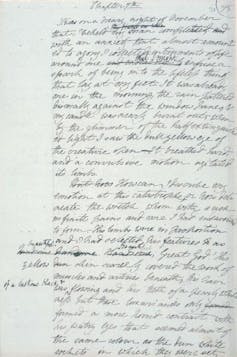 Chapter 7th
It was on a dreary night of November
that I beheld my man completed and
with an anxiety that almost amount
ed to agony I collected instruments of life
around me that I might infuse a
spark of being into the lifeless thing
that lay at my feet. It was already
one in the morning, the rain pattered
dismally against the window panes &
my candle was nearly burnt out, when
by the glimmer of the half extinguish
ed light I saw the dull yellow eye of
the creature open — It breathed hard,
and a convulsive motion agitated
its limbs.
But how How can I describe my
emotion at this catastrophe; or how deli
neate the wretch whom with such
infinite pains and care I had endeavoured
to form. His limbs were in proportion
and I had selected his features as
handsome Great God! His
skin scarcely covered the work of
muscles and arteries beneath; his hair
of a lustrous black &
flowing and his teeth of a pearly white
ness but these luxuriances only
formed a more horrid contrast with
his watry eyes that seemed almost of
the same colour as the dun white
sockets in which they were set,